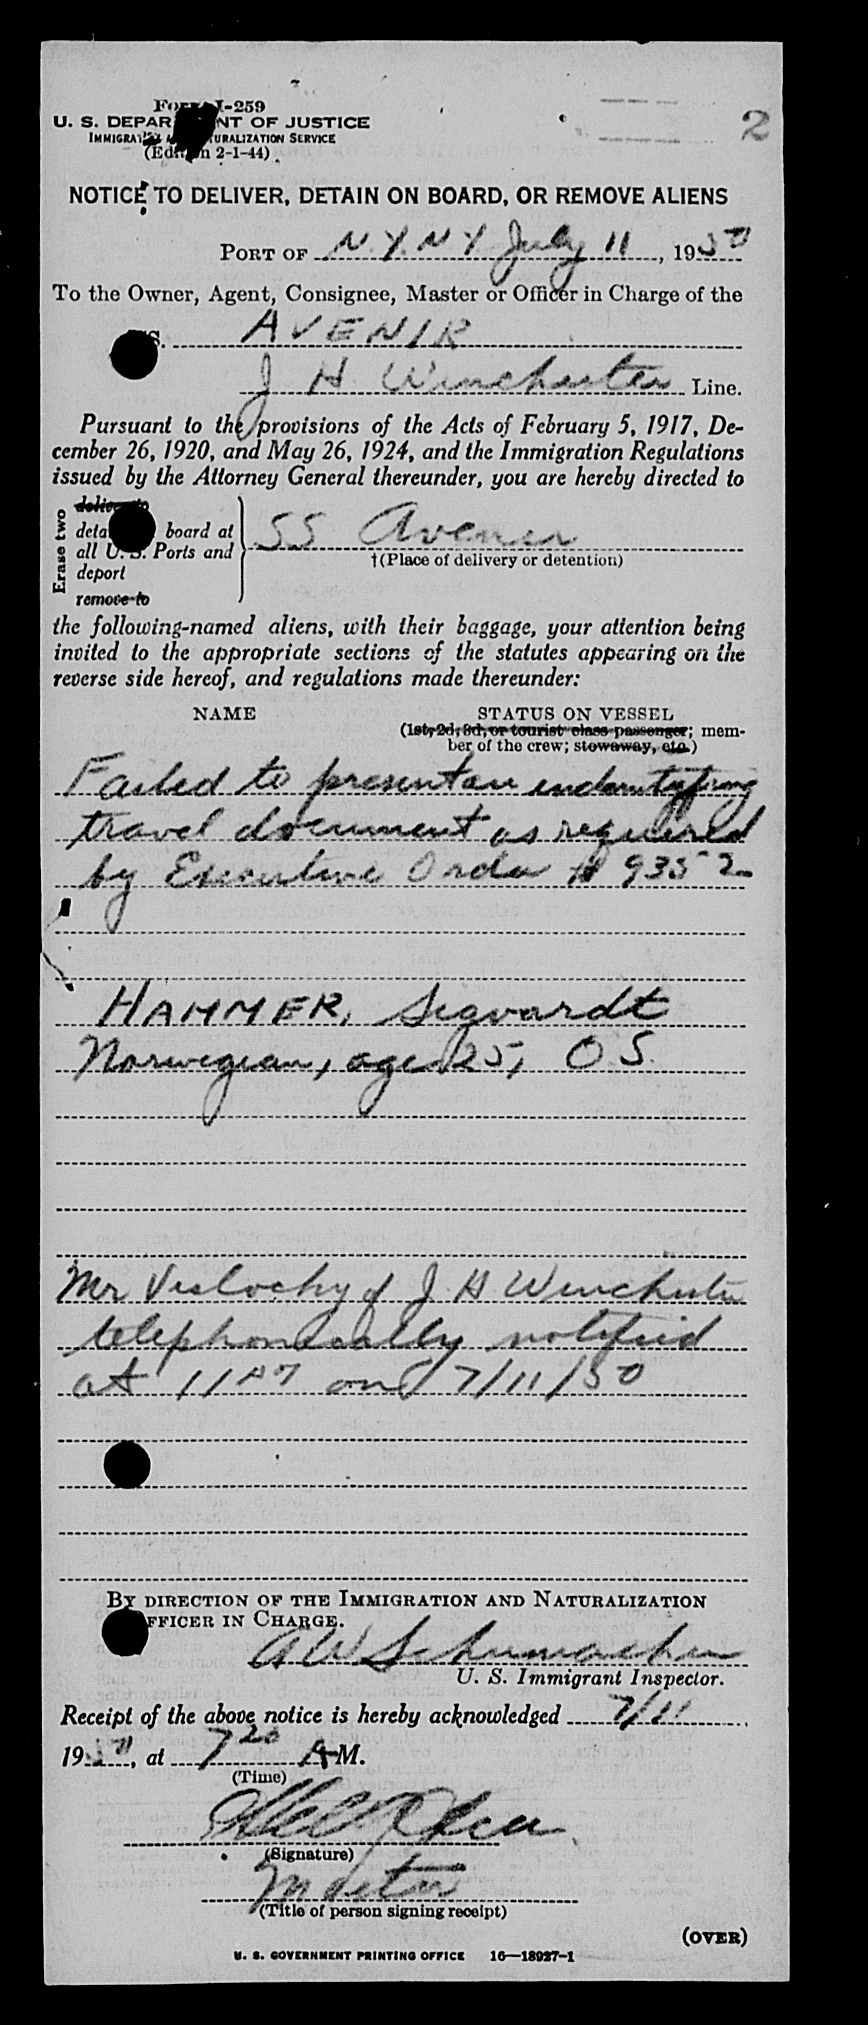 2
Form I-259
U. S. DEPARTMENT OF JUSTICE
IMMIGRATION AND NATURALIZATION SERVICE
(Edition 2-1-44)
NOTICE TO DELIVER, DETAIN ON BOARD, OR REMOVE ALIENS
PORT OF N.Y. N Y July 11, 1950
To the Owner, Agent, Consignee, Master or Officer in Charge of the
SS. AVENIR
J H Winchester Line.
Pursuant to the provisions of the Acts of February 5, 1917, De-
cember 26, 1920, and May 26, 1924, and the Immigration Regulations
issued by the Attorney General thereunder, you are hereby directed to
Erase two
deliver to
detain on board at
all U. S. Ports and
deport
remove to
SS Avenir
†(Place of delivery or detention)
the following-named aliens, with their baggage, your attention being
invited to the appropriate sections of the statutes appearing on the
reverse side hereof, and regulations made thereunder:
NAME STATUS ON VESSEL
(1st, 2d, 3d, or tourist class passenger; mem-
ber of the crew; stowaway, etc.)
Failed to present an indentifying
travel document as required
by Executive Order # 9352
HAMMER, Sigvardt
Norwegian, age 25, O S.
Mr of J H Winchester
telephonically notified
at 11 AM on 7/11/50
BY DIRECTION OF THE IMMIGRATION AND NATURALIZATION
OFFICER IN CHARGE.
A W Schumacher
U. S. Immigrant Inspector.
Receipt of the above notice is hereby acknowledged 7/11
1950, at 7 20 A M.
(Time)
(Signature)
Master
(Title of person signing receipt)
(OVER)
U. S. GOVERNMENT PRINTING OFFICE 16—18927-1